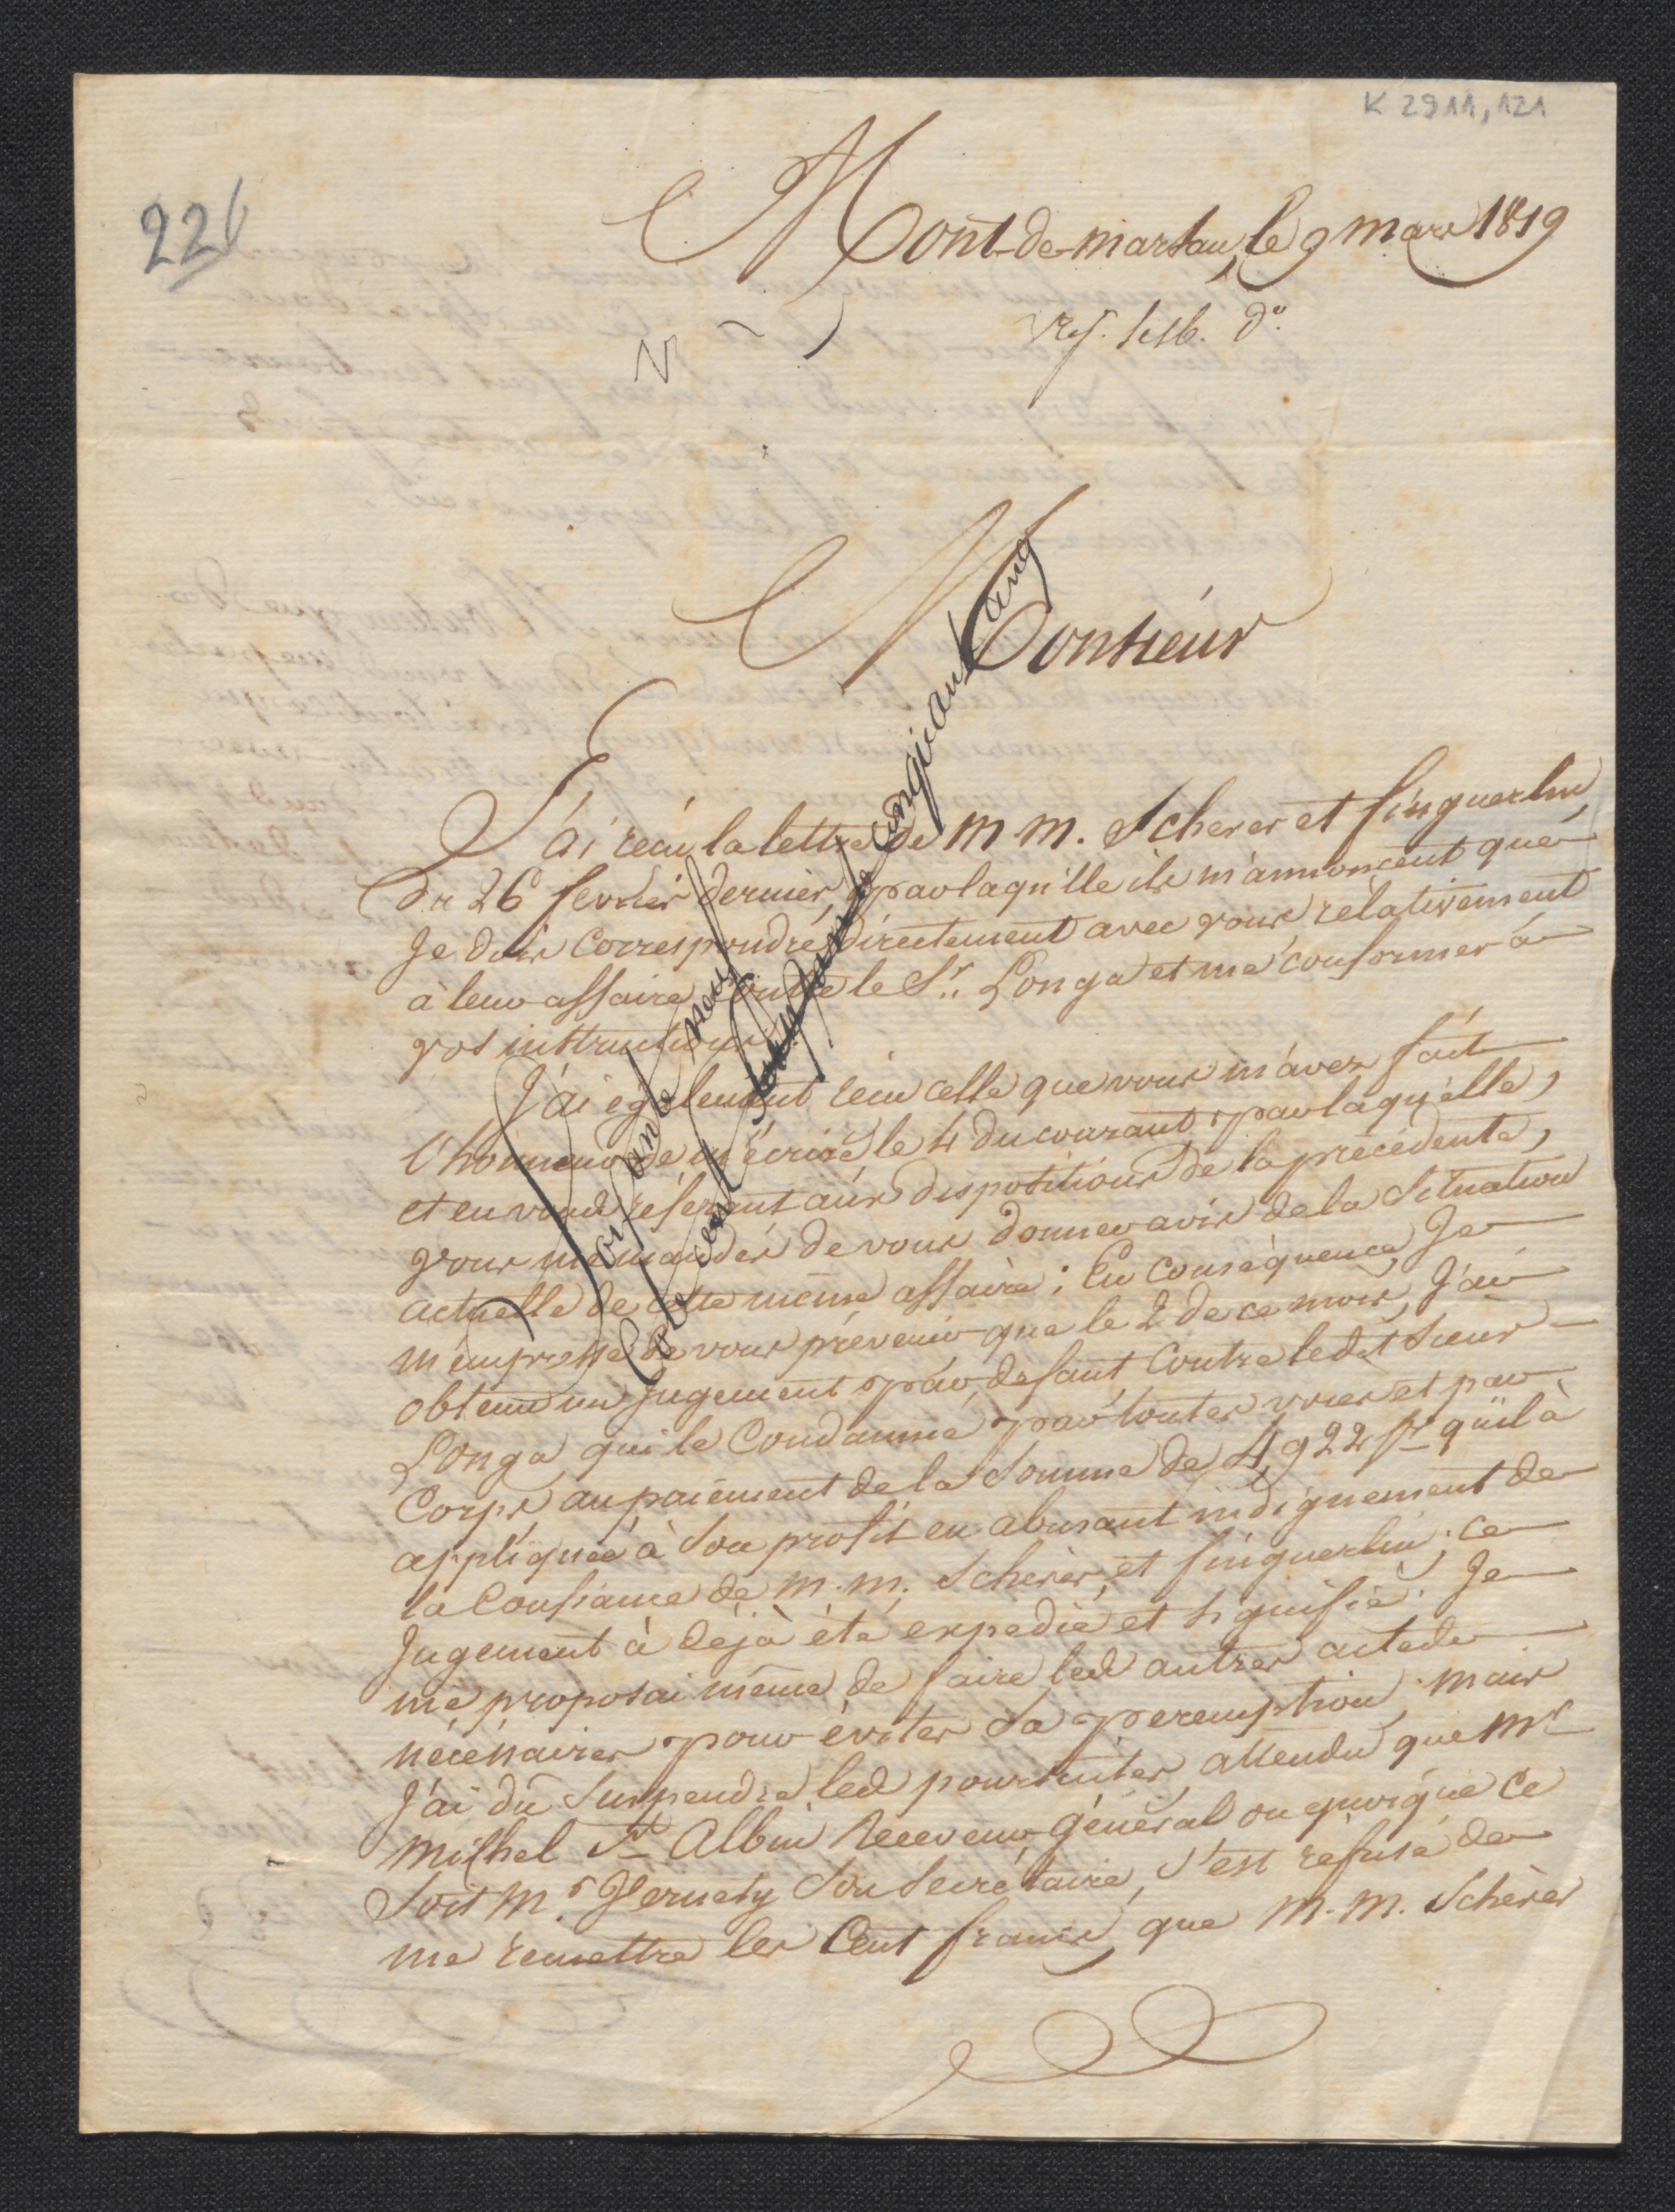 K 2911,121
226
Mont-de-marsan, le 9 mars 1819
Monsieur
J'ai recu la lettre de M.M. Scherer et finguerlin,
du 26 fevrier dernier, par laquelle ils m'annoncent que
Je dois correspondre directement avec vous relativement
à leur affaire contre le Sr. Longa et me conformer à
vos instructions.
J'ai également recu celle que vous m'avez fait
l'honneur de m'écrire le 4 du courant, par laquelle,
et en vous réferant aux dispositions de la précédente,
vous me mandés de vous donner avis de la Situation
actuelle de cette même affaire ; En Conséquence, Je
m'empresse de vous prévenir que le 2 de ce mois, J'ai
obtenu un Jugement par defaut Contre ledit Sieur
Longa, qui le Condamne par toutes voies et par
Corps, au paiement de la Somme de 4,922 fr qu'il à
appliquée à Son profit en abusant indignement de
la Confiance de M.M. Scherer et finguerlin ; ce
Jugement à déjà été expedié et signifié. Je
me proposai même de faire les autres actes
nécéssaires pour éviter Sa peremption, mais
J'ai dû Suspendre les poursuites, attendu que Mr
Michel St Albin Receveur Général ou quoique ce
Soit Mr. Vernety Son Secrétaire, s'est refusé de
me remettre les Cent francs, que M.M. Schèrer
soixante neuf
cent cinquante cinq